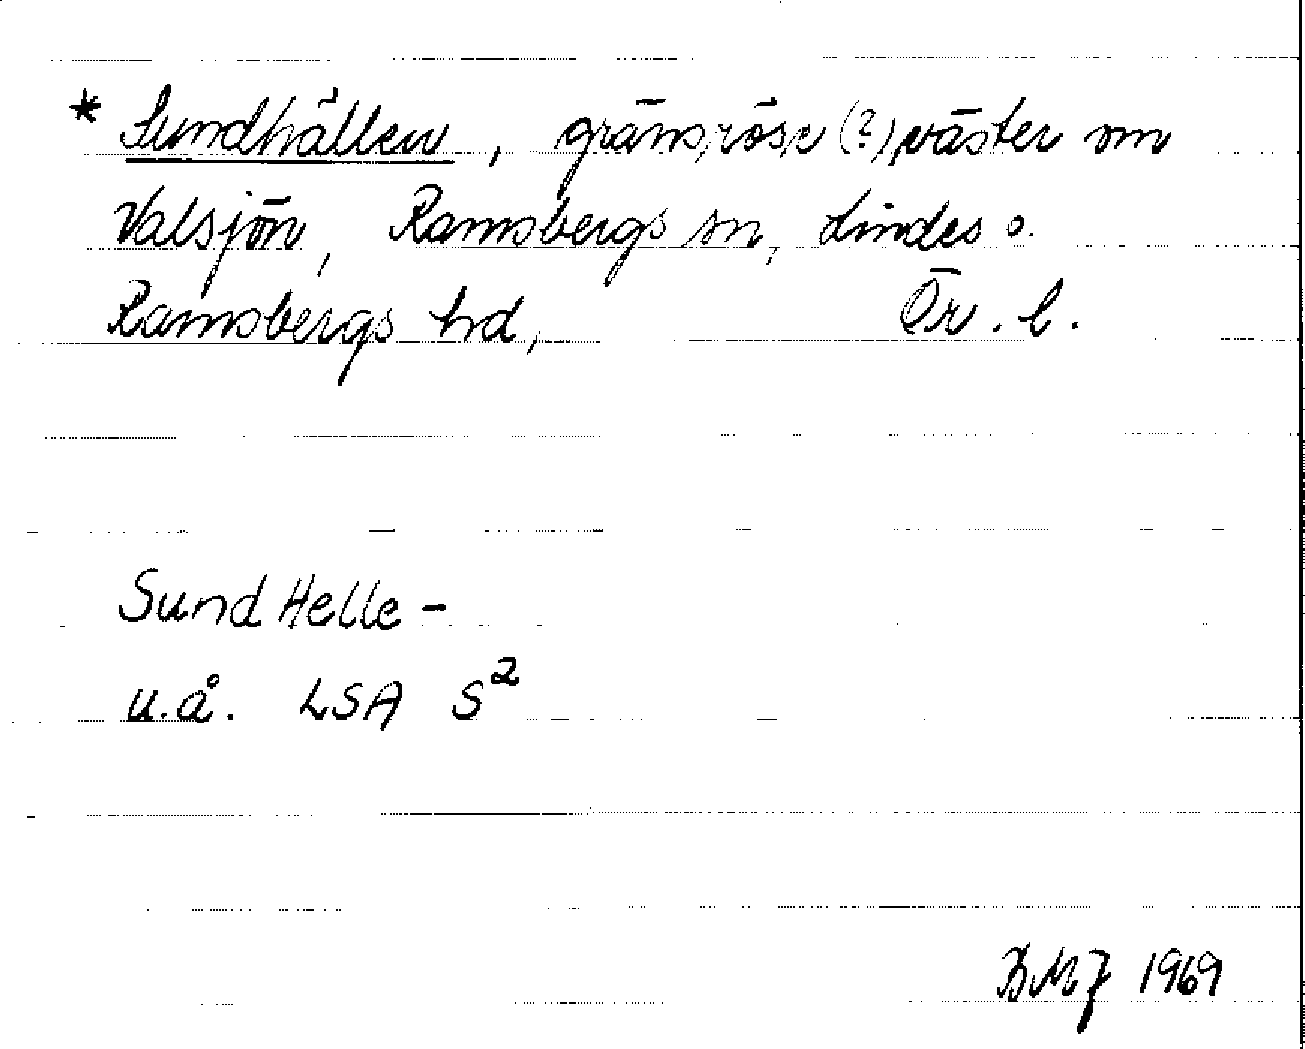 * Sundhällen, gränsröse (?) väster om
Valsjön, Ramsbergs sn, Lindes o.
Ramsbergs hd, Ör. l.
Sund Helle -
u.å. LSA S²
BMJ 1969